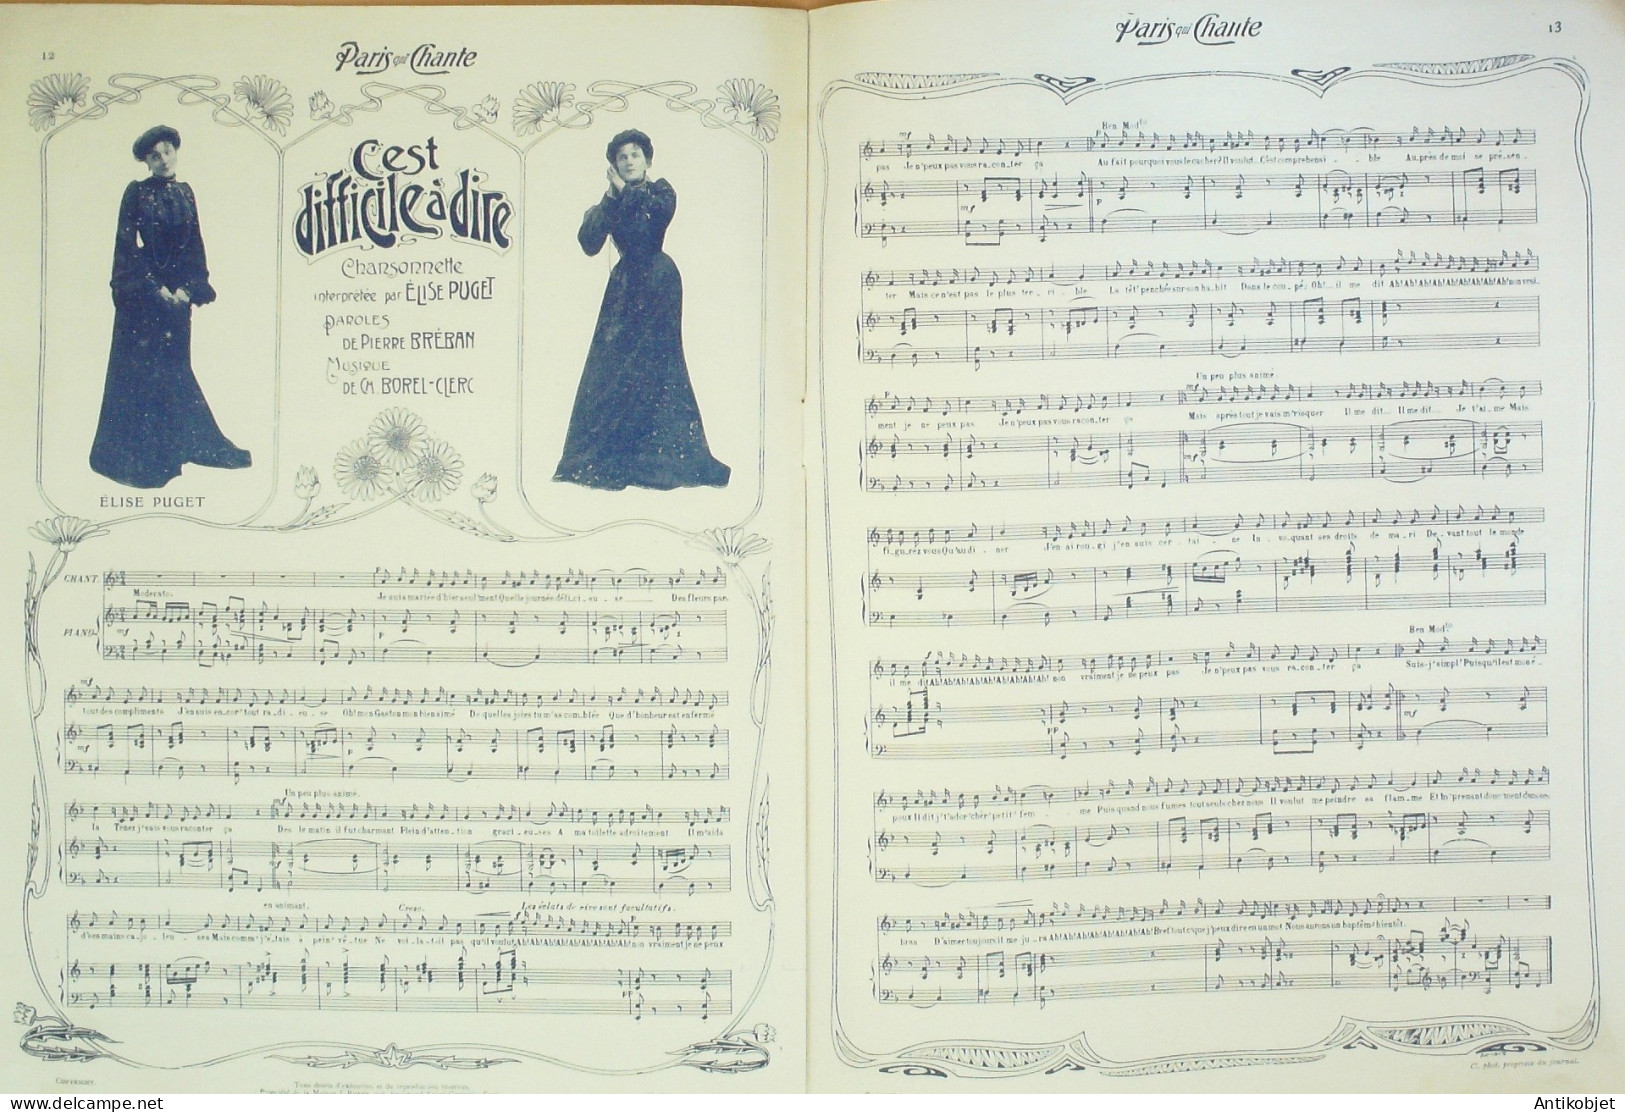 12
Paris qui Chante
C'est
difficile à dire
Chansonnette
interprétée par ÉLISE PUGET
PAROLES
DE PIERRE BRÉBAN
MUSIQUE
DE CH. BOREL-CLERC
ÉLISE PUGET
CHANT.
Moderato.
PIANO.
Je suis mariée d'hier seul'ment Quelle journée déli.ci._eu_se Des fleurs par.
tout des compliments J'en suis encor' tout ra_di._eu_se Oh! mon Gaston mon bien aimé De quelles joies tu m'as comblée Que d'bonheur est enfermé
Un peu plus animé.
là Tenez j'vais vous raconter ça Dès le matin il fut charmant Plein d'atten_tion graci_eu_ses A ma toilette adroitement Il m'aida
en animant. Cresc. Les éclats de rire sont facultatifs.
d'ses mains ca_jo_leu_ses Mais comm' j'é_tais à pein' vê_tue Ne voi_là_t-il pas qu'il voulut Ah! Ah! Ah! Ah! Ah! Ah! Ah! Ah! Ah! non vraiment je ne peux
COPYRIGHT.
Tous droits d'exécution et de reproduction réservés.
Paris qui Chante
13
Ben Modto
pas Je n'peux pas vous ra_con_ter ça Au fait pourquoi vous le cacher? Il voulut.. C'est compréhensi_ble Auprès de moi se pré_sen_
ter Mais ce n'est pas le plus ter_ri_ble La têt' penchée sur son ha_bit Dans le cou_pé; Oh!... il me dit Ah! Ah! Ah! Ah! Ah! Ah! Ah! Ah! Ah! non vrai_
Un peu plus animé.
ment je ne peux pas Je n'peux pas vous racon_ter ça Mais après tout je vais m'risquer Il me dit... Il me dit... Je t'ai_me Mais
fi_gu_rez vous Qu'au dî_ner J'en ai rou_gi j'en suis cer_tai_ne In_vo_quant ses droits de ma_ri De_vant tout le monde
Ben Modto
il me dit Ah! Ah! Ah! Ah! Ah! Ah! Ah! Ah! Ah! non vraiment je ne peux pas Je n'peux pas vous ra_con_ter ça Suis-j' simpl' Puisqu'il est mon é_
poux Il dit j't'ador' chèr' petit' fem_me Puis quand nous fûmes tout seuls chez nous Il voulut me peindre sa flam_me Et m'prenant douc'ment dans ses
bras D'aimer toujours il me ju_ra Ah! Ah! Ah! Ah! Ah! Ah! Ah! Ah! Ah! Bref tout c'que j'peux dire en un mot Nous aurons un baptême bientôt.
C. phot. propriété du journal.
Antikobjet